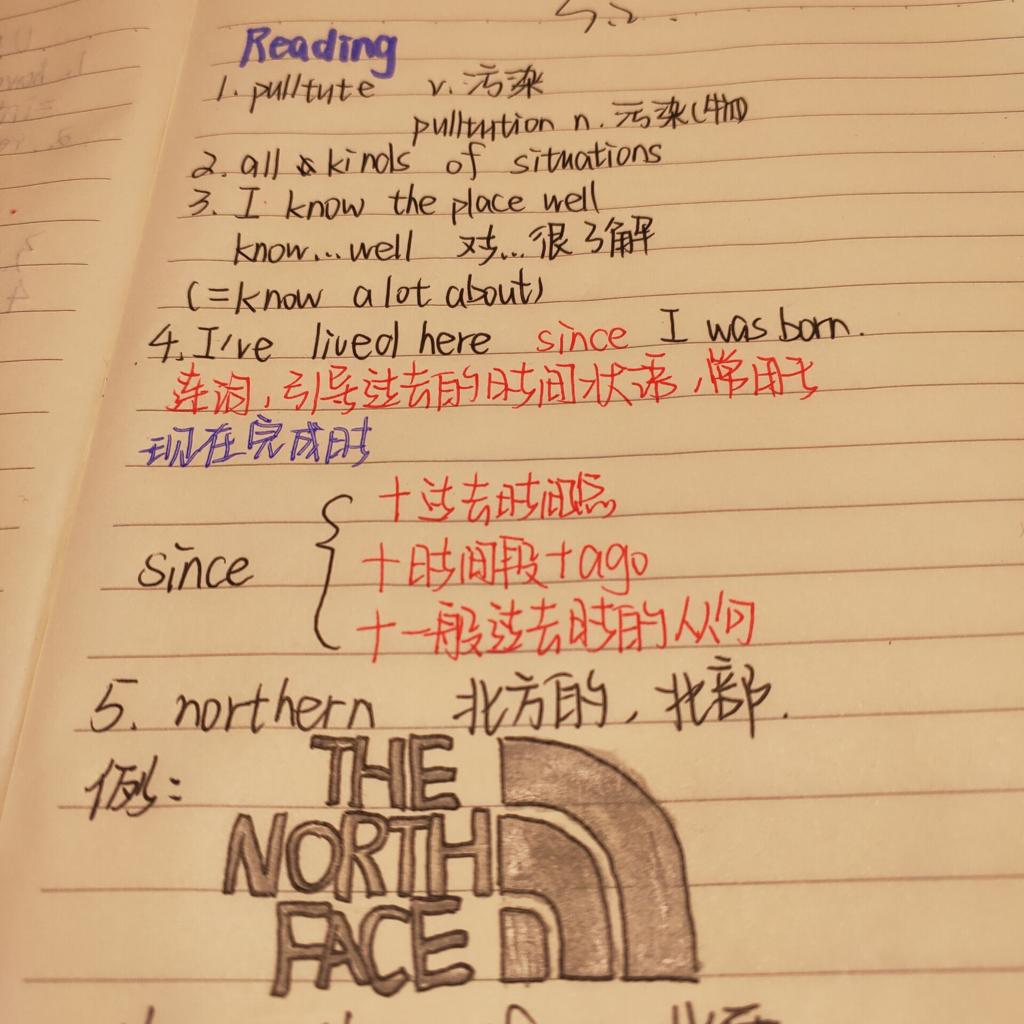 5.2.
Reading
1. pulltute v. 污染
pulltution n. 污染(物)
2. all kinds of situations
3. I know the place well
know...well 对...很了解
(=know a lot about)
4. I've lived here since I was born.
连词,引导过去的时间状语,常用于
现在完成时
since
+过去时间点
+时间段+ago
+一般过去时的从句
5. northern 北方的, 北部.
例:
THE
NORTH
FACE